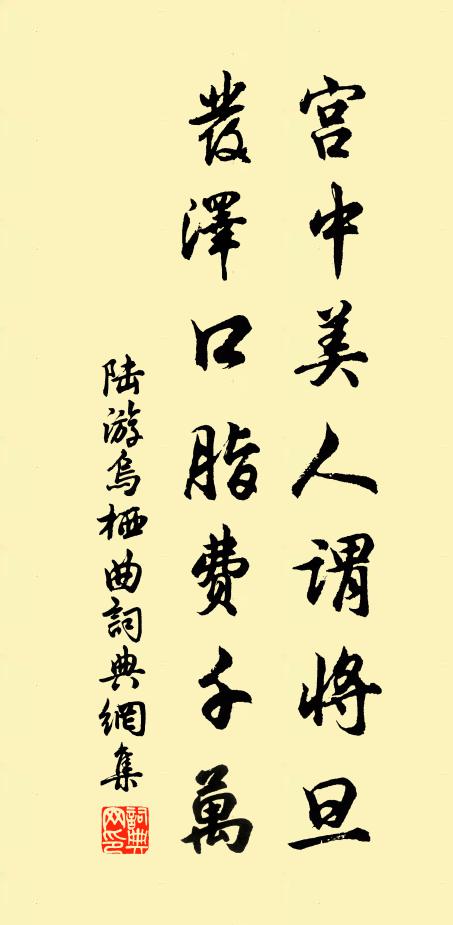 宮中美人謂將旦
發澤口脂費千萬
陸游烏栖曲詞典網集
詞典網印